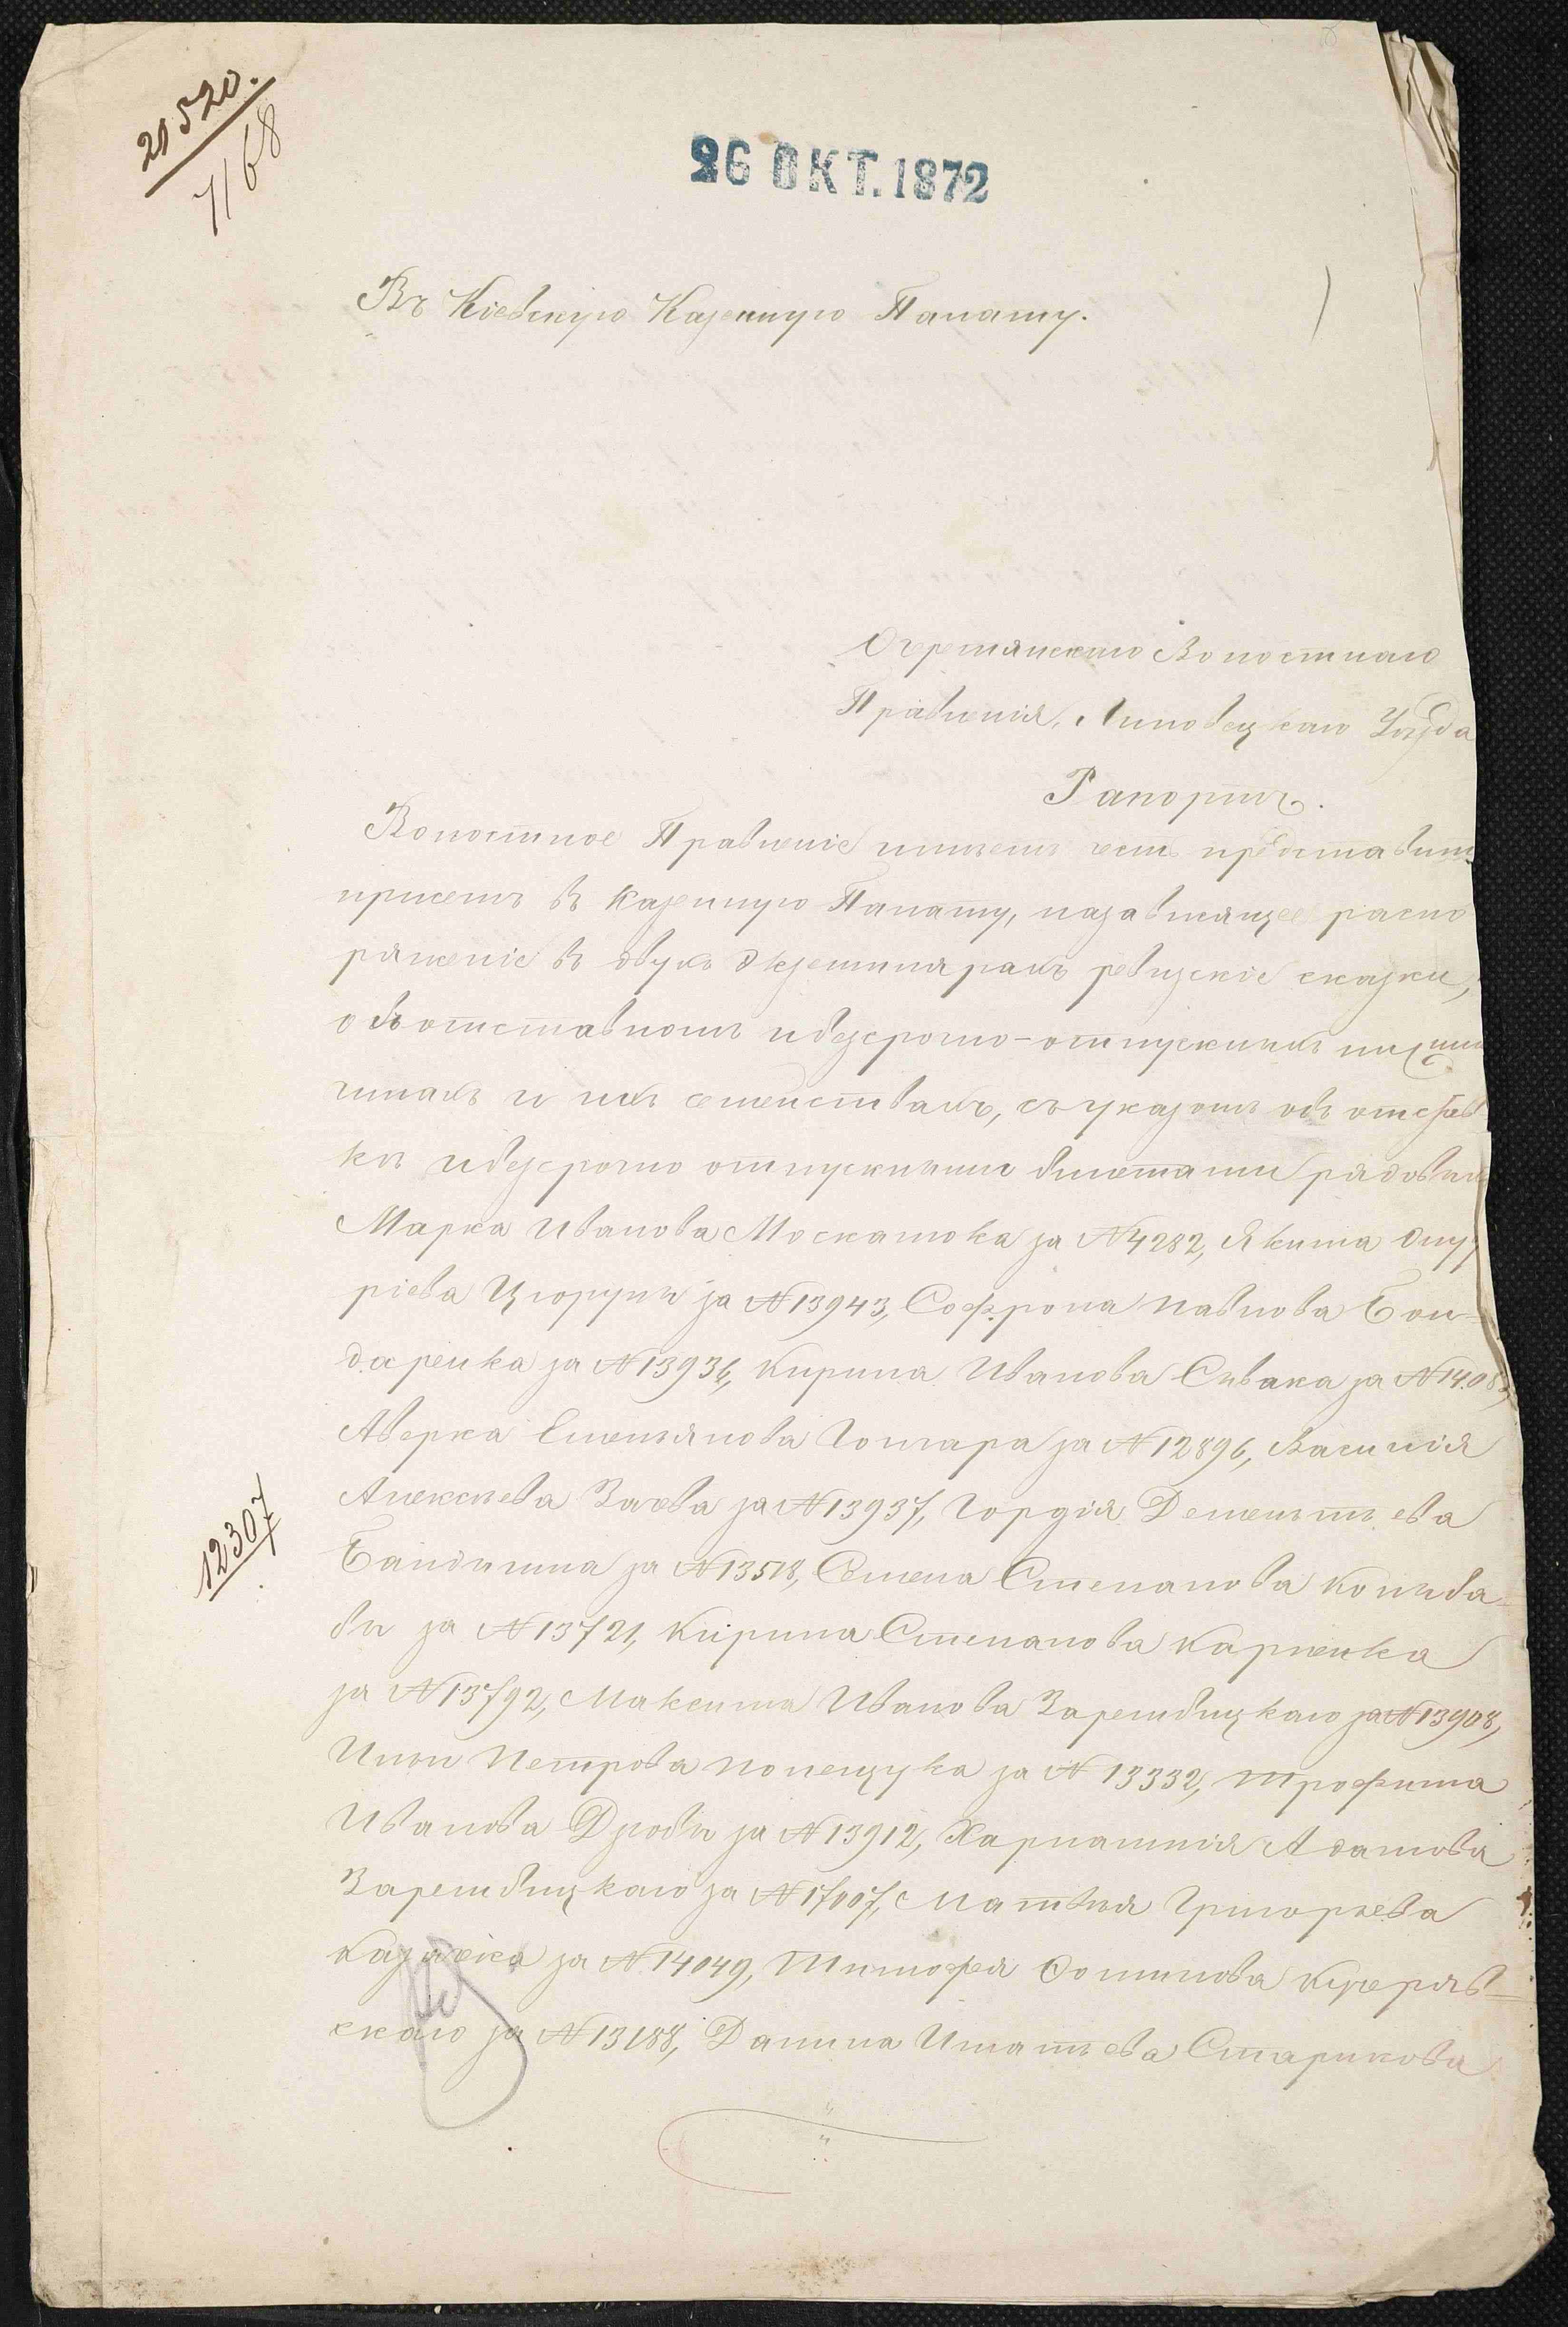 21520.
7168
26 ОКТ. 1872
Въ Кіевскую Казенную Палату.
Очеретянскаго Волостнаго
Правленія, Липовецкаго Уѣзда
Рапортъ.
Волостное Правленіе имѣетъ честь представит
присемъ въ Казенную Палату, назависящее распо
ряженіе въ двухъ экземплярахъ ревизскіе сказки,
объ отставномъ и безсрочно-отпускныхъ нижни
чинахъ и ихъ семействахъ, съ указомъ объ отстав
кѣ и безсрочно отпускными билетами рядовых
Марка Иванова Москалюка за № 4282, Якима Онуф
ріева Цюрупы за № 13943, Софрона Павлова Бон-
даренка за № 13936, Кирила Иванова Сивака за № 1408
Аверка Емельянова Гончара за № 12896, Василія
Алексѣева Заева за № 13937, Гордія Дементьева
за № 13518, Семена Степанова Колыба-
бы за № 13721, Кирила Степанова Карпенка
за № 13792, Максима Иванова Зарембицкаго за № 13908,
Ильи Петрова Полещука за № 13332, Трофима
Иванова Дзюбы за № 13912, Харлампія Адамова
Зарембицкаго за № 17007, Матвѣя Григорьева
за № 14049, Тимофея Фоминова Кучеряв-
скаго за № 13188, Данила Игнатьева Старикова
12307